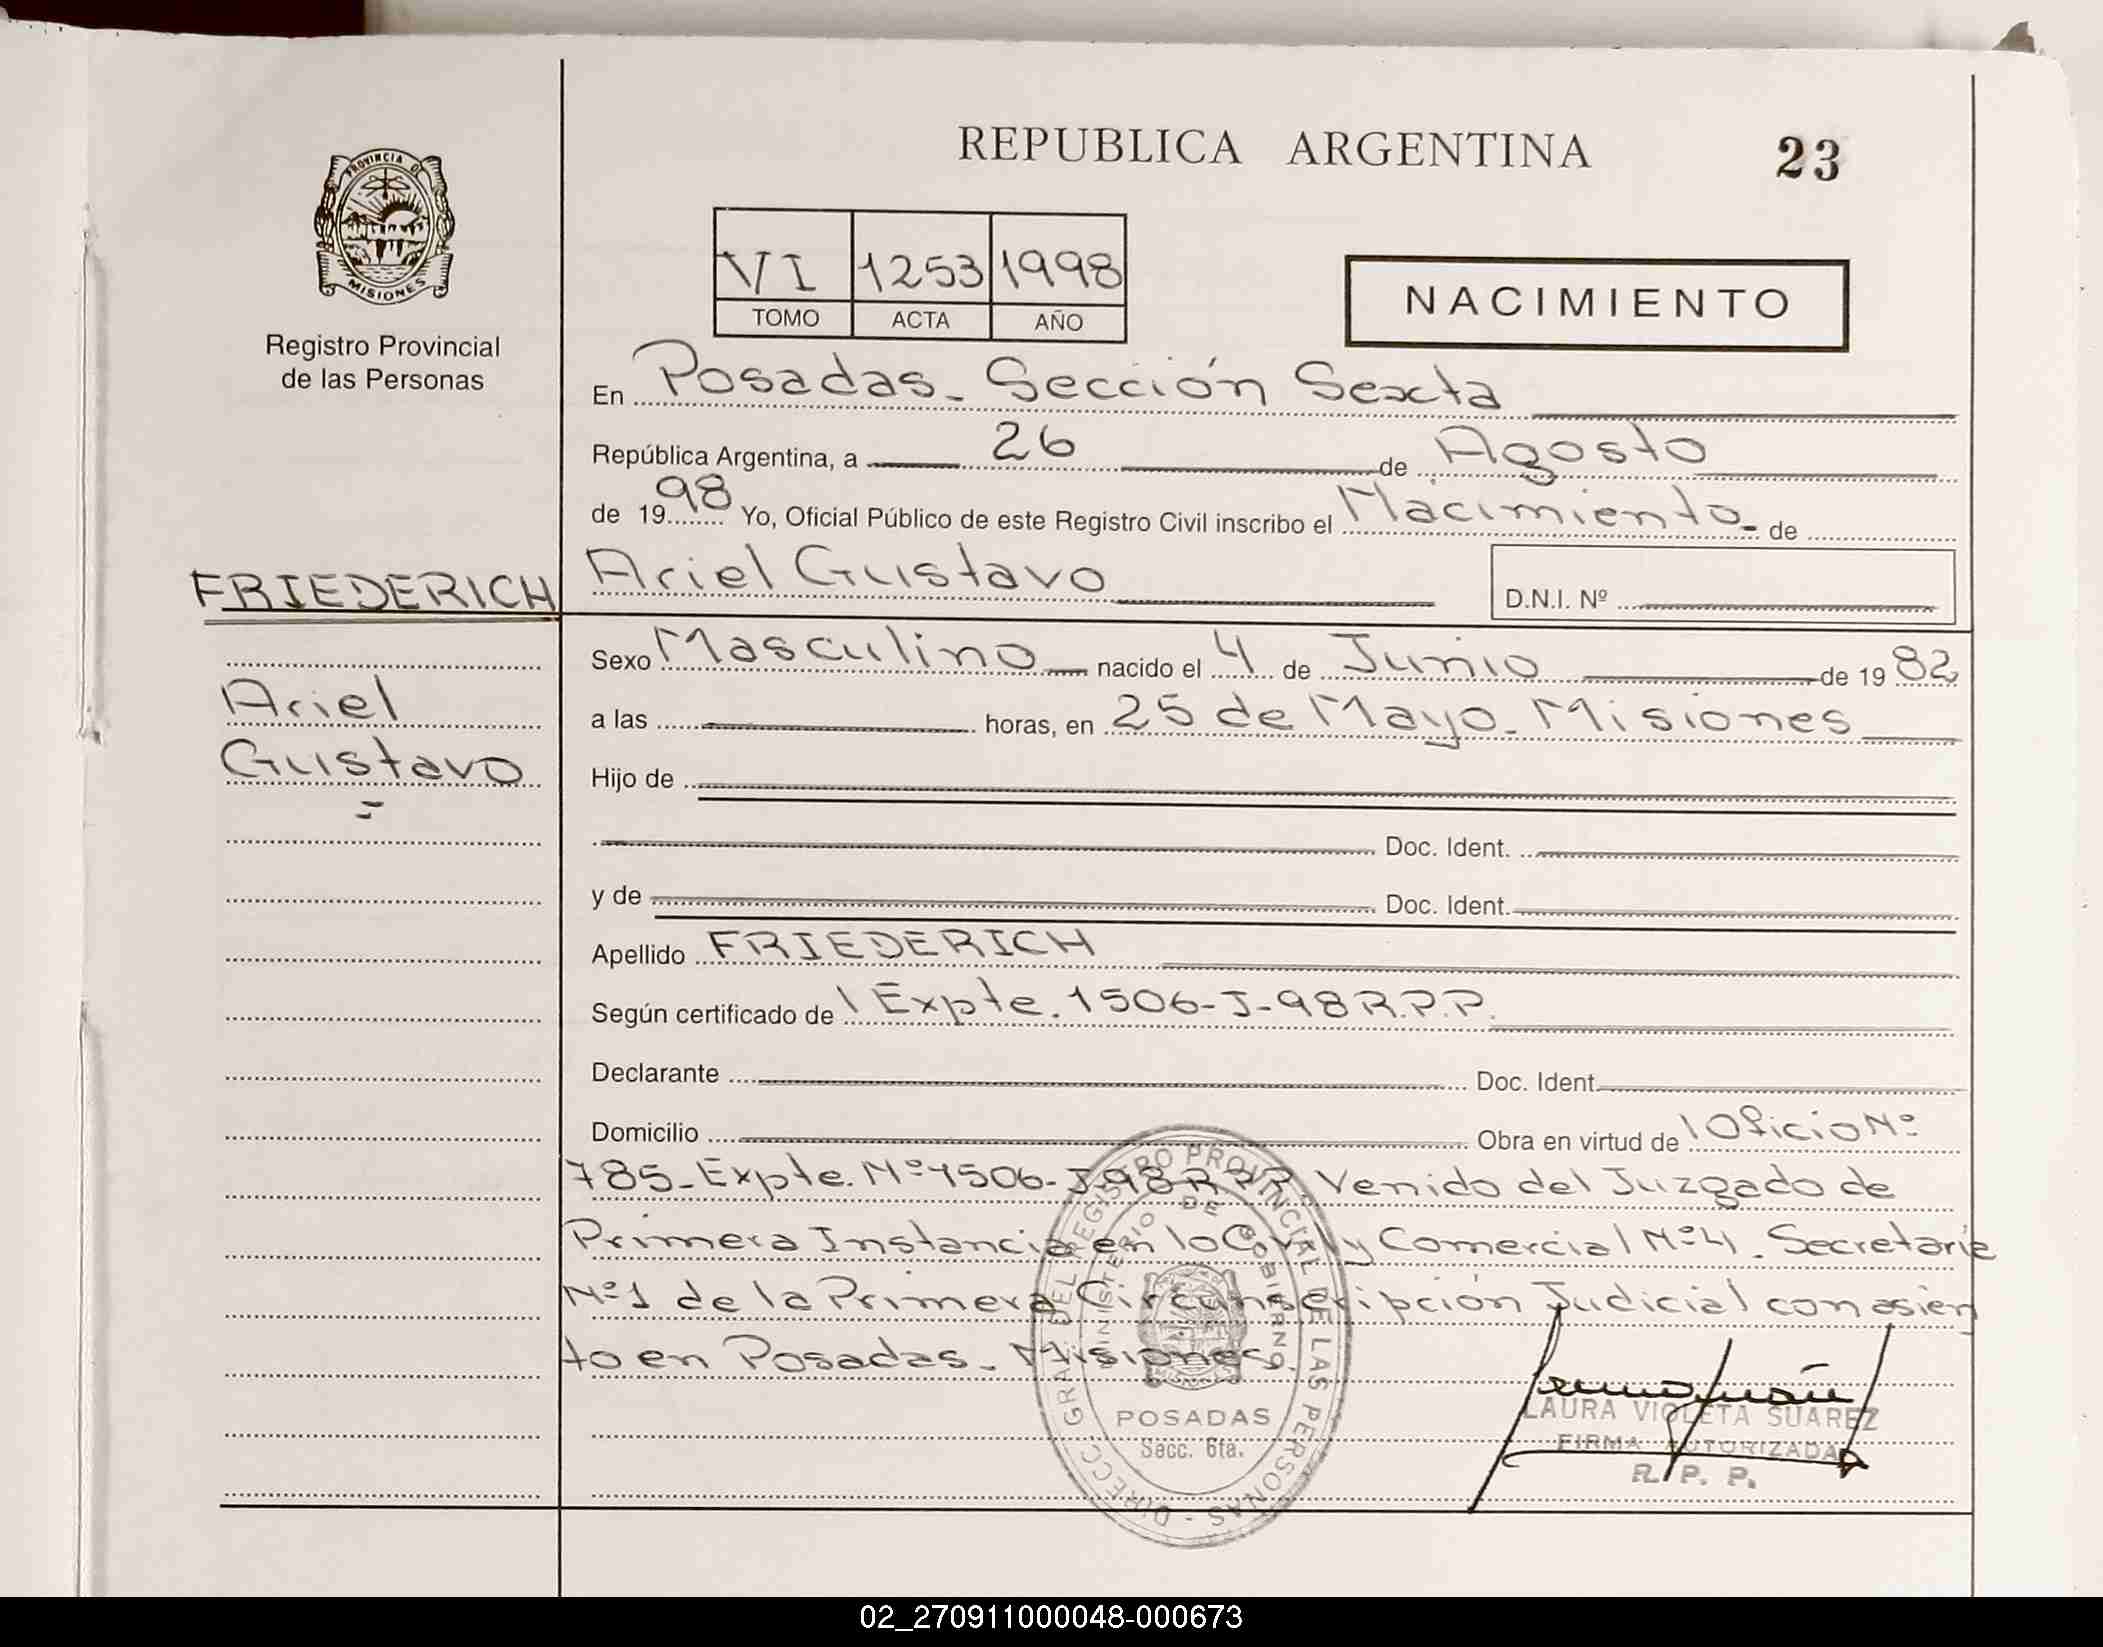 REPUBLICA ARGENTINA
23
PROVINCIA DE
MISIONES
Registro Provincial
de las Personas
VI 1253 1998
TOMO ACTA AÑO
NACIMIENTO
En Posadas - Sección Sexta
República Argentina, a 26 de Agosto
de 1998 Yo, Oficial Público de este Registro Civil inscribo el Nacimiento - de
FRIEDERICH
Ariel Gustavo
D.N.I. Nº
Ariel
Gustavo
Sexo Masculino nacido el 4 de Junio de 1982
a las horas, en 25 de Mayo - Misiones
Hijo de
Doc. Ident.
y de Doc. Ident.
Apellido FRIEDERICH
Según certificado de Expte. 1506-J-98 R.P.P.
Declarante Doc. Ident.
Domicilio Obra en virtud de Oficio Nº
785- Expte. Nº 1506-J-98 R.P.P. Venido del Juzgado de
Primera Instancia en lo Civil y Comercial Nº 4. Secretaria
Nº 1 de la Primera Circunscripción Judicial con asien
to en Posadas - Misiones.
DIRECC. GRAL. DEL REGISTRO PROVINCIAL DE LAS PERSONAS -
MINISTERIO DE GOBIERNO
POSADAS
Secc. 6ta.
LAURA VIOLETA SUAREZ
FIRMA AUTORIZADA
R. P. P.
02_270911000048-000673